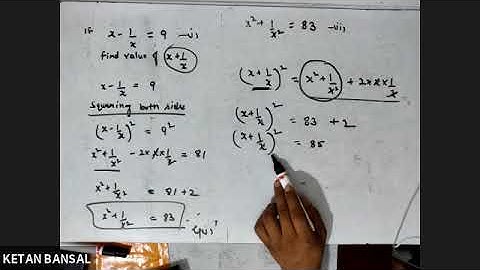 If x - 1/x = 9 -(i)
find value of x + 1/x
x - 1/x = 9
Squaring both sides
(x - 1/x)² = 9²
x² + 1/x² - 2×x×1/x = 81
x² + 1/x² = 81 + 2
x² + 1/x² = 83
x² + 1/x² = 83 -(ii)
(x + 1/x)² = x² + 1/x² + 2×x×1/x
(x + 1/x)² = 83 + 2
(x + 1/x)² = 85
KETAN BANSAL